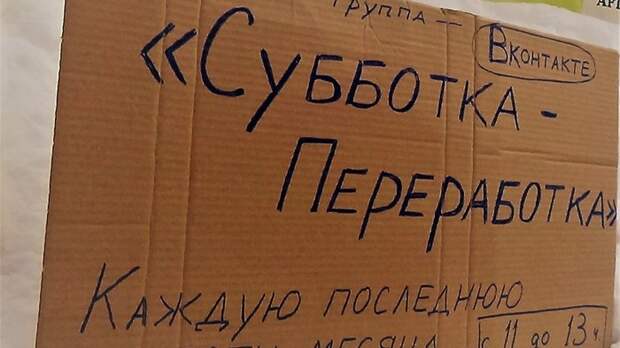 ГРУППА —
ВКОНТАКТЕ
«СУББОТКА -
ПЕРЕРАБОТКА»
КАЖДУЮ ПОСЛЕДНЮЮ
МЕСЯЦА С 11 ДО 13 Ч.